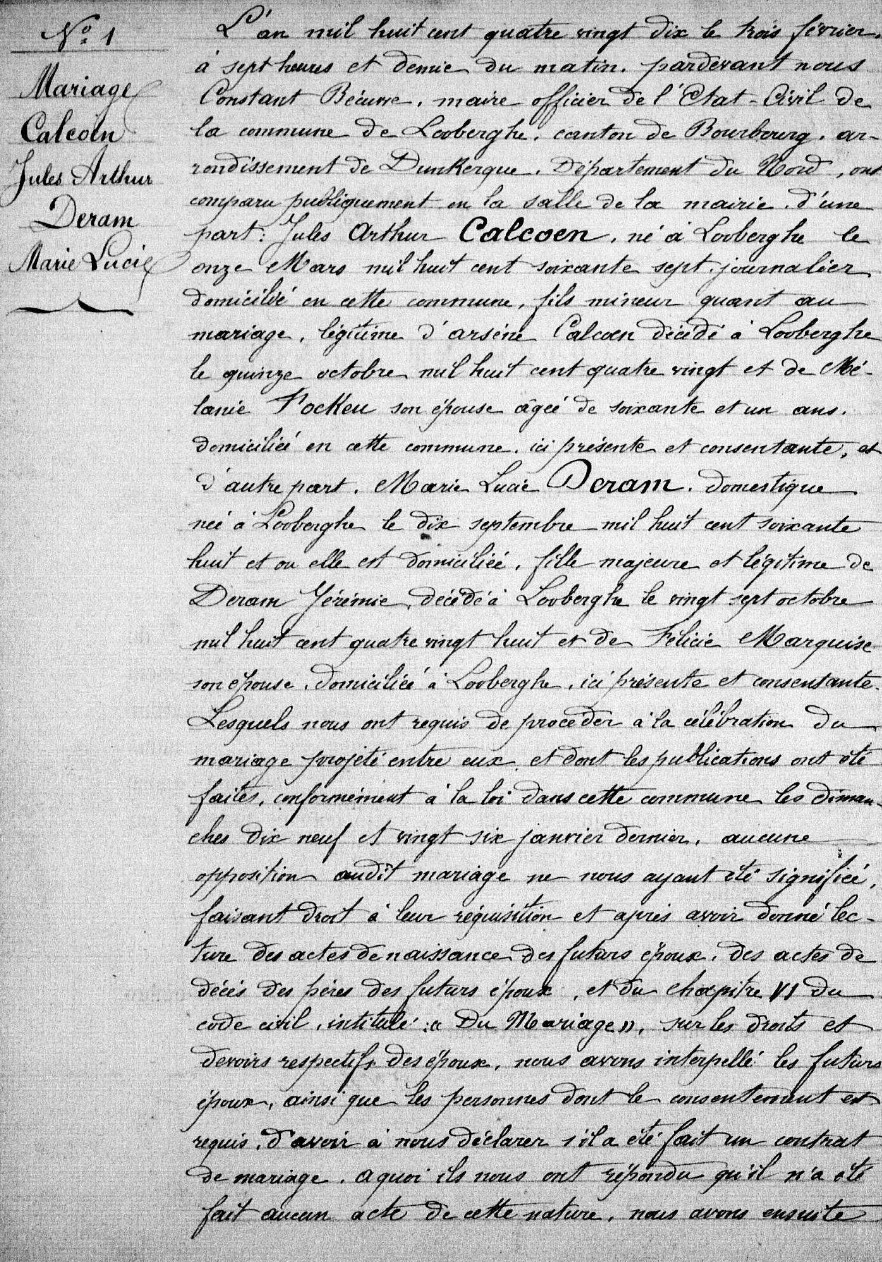 Nº 1
Mariage
Calcoen
Jules Arthur
Deram
Marie Lucie
L'an mil huit cent quatre vingt dix le trois février,
à sept heures et demie du matin. pardevant nous
Constant Bécuwe, maire officier de l'Etat-Civil de
la commune de Looberghe, canton de Bourbourg, ar-
rondissement de Dunkerque, Département du Nord, ont
comparu publiquement en la salle de la mairie, d'une
part: Jules Arthur Calcoen, né à Looberghe le
onze Mars mil huit cent soixante sept, journalier
domicilié en cette commune, fils mineur quant au
mariage, légitime d'arsène Calcoen décédé à Looberghe
le quinze octobre mil huit cent quatre vingt et de Mé-
lanie Fockeu son épouse agéé de soixante et un ans.
domiciliée en cette commune, ici présente et consentante, et
d'autre part. Marie Lucie Deram. domestique
née à Looberghe le dix septembre mil huit cent soixante
huit et ou elle est domiciliée, fille majeure et légitime de
Deram Jérémie, décédé à Looberghe le vingt sept octobre
mil huit cent quatre vingt huit et de Félicie Marquise
son épouse, domiciliée à Looberghe, ici présente et consentante.
Lesquels nous ont requis de procéder à la célébration du
mariage projeté entre eux et dont les publications ont été
faites, conformément à la loi dans cette commune les diman-
ches dix neuf et vingt six janvier dernier, aucune
opposition audit mariage ne nous ayant été signifiée,
faisant droit à leur réquisition et après avoir donné lec-
ture des actes de naissance des futurs époux, des actes de
décès des pères des futurs époux, et du chapitre VI du
code civil, intitulé: « Du Mariage », sur les droits et
devoirs respectifs des époux, nous avons interpellé les futurs
époux, ainsi que les personnes dont le consentement est
requis, d'avoir à nous déclarer s'il a été fait un contrat
de mariage. a quoi ils nous ont répondu qu'il n'a été
fait aucun acte de cette nature, nous avons ensuite